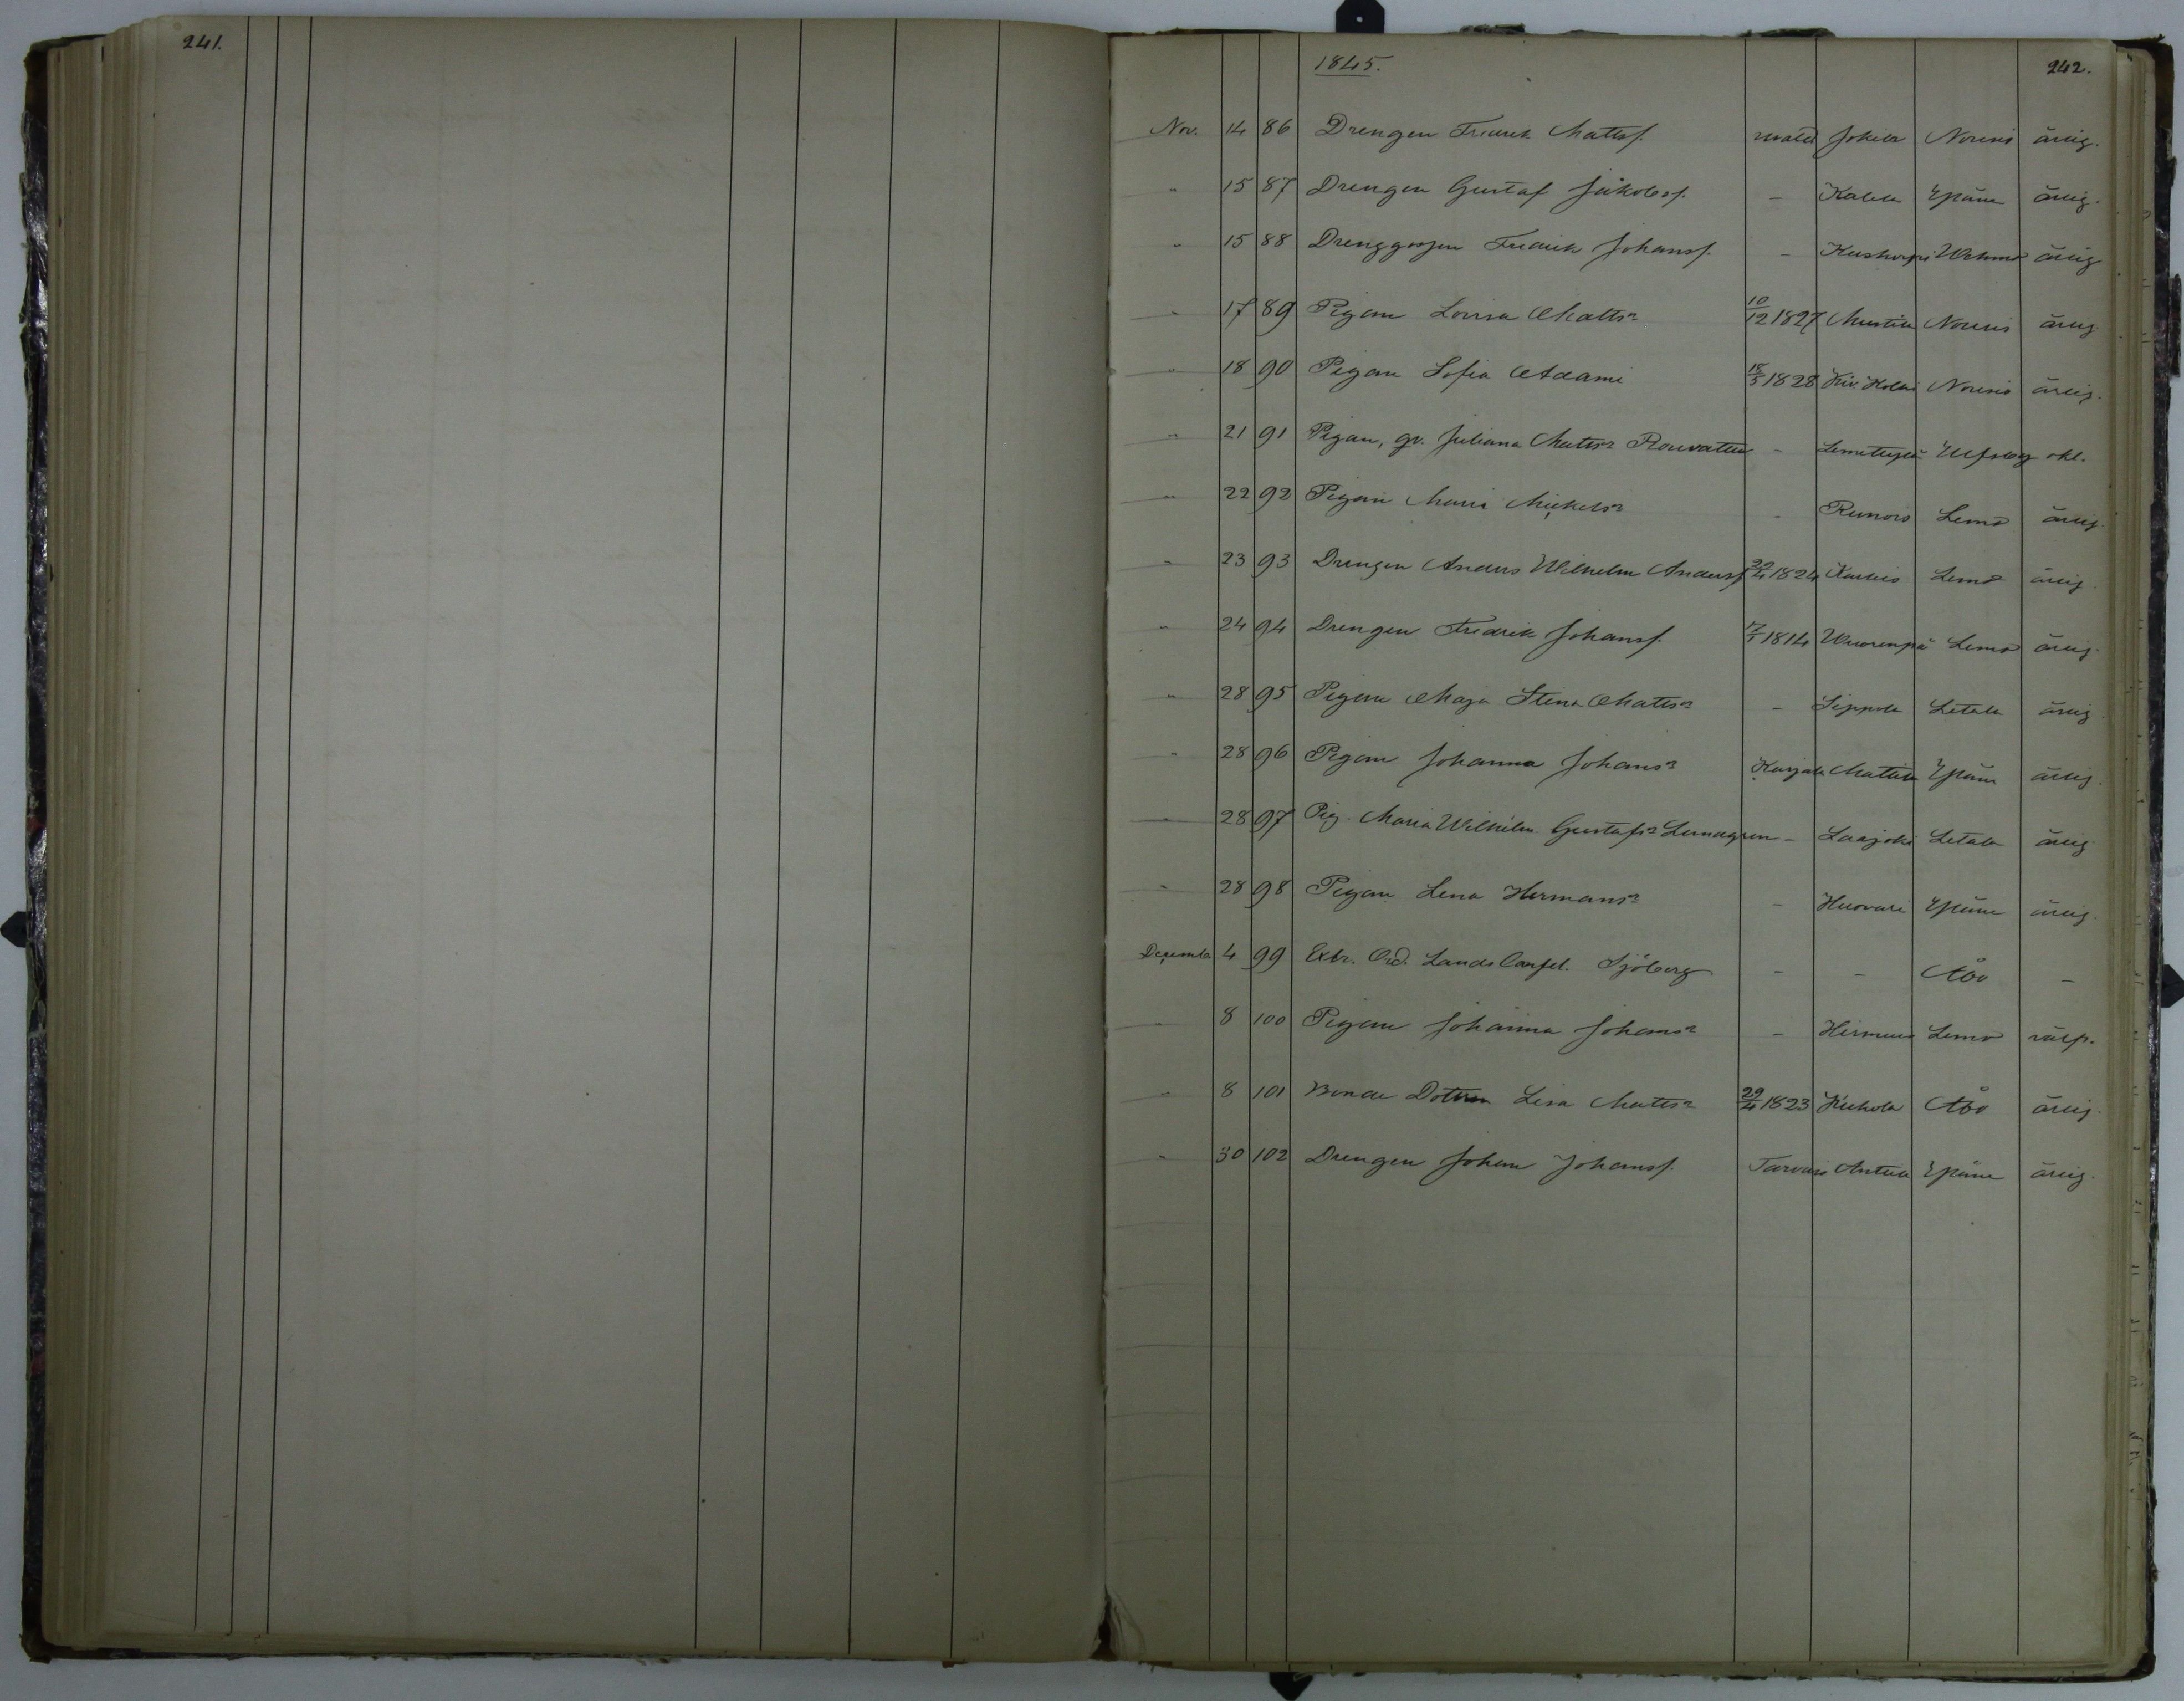 241.
1845. 242.
Nov. 14 86 Drengen Fredrik Mattsf. Jokela Nousis ärlig.
" 15 87 Drengen Gustaf Jakobsf. - Kalela Ypäine ärlig.
" 15 88 Drenggossen Fredrik Johansf. - Wehmo ärlig
" 17 89 Pigan Lovisa Mattsr 10/12 1827 Nousis ärlig
" 18 90 Pigan Sofia Adami 18/5 1828 Nousis ärlig.
" 21 91 Pigan, gr. Juliana Mattsr - Ulfsby okl.
" 22 92 Pigan Maria Mickelsr - Runois Lemo ärlig.
" 23 93 Drengen Anders Wilhelm Andersf. 22/4 1824 Karvis Lemo ärlig.
" 24 94 Drengen Fredrik Johansf. 7/1 1814 Wuorenpä Lemo ärlig.
" 28 95 Pigan Maja Stina Mattsr - Seppola Letala ärlig
" 28 96 Pigan Johanna Johansr Karjala Mattila Ypäine ärlig.
" 28 97 Pig. Maria Wilhelm. Gustafsr Lundgren - Laajoki Letala ärlig
" 28 98 Pigan Lena Hermansr - Huovari Ypäine ärlig.
Decemb. 4 99 Extr. Ord. Lands Canzel. Sjöberg - - Åbo -
8 100 Pigan Johanna Johansr - Hirmus Lemo välf.
" 8 101 Bonde Dotren Lisa Mattsr 29/4 1823 Åbo ärlig.
" 30 102 Drengen Johan Johansf. Tarvais Anttila Ypäine ärlig.